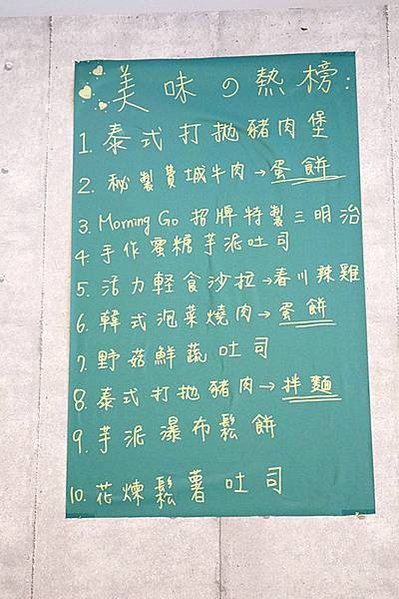 美味の熱榜:
1. 泰式打拋豬肉堡
2. 秘製費城牛肉→蛋餅
3. Morning Go 招牌特製三明治
4. 手作蜜糖芋泥吐司
5. 活力軽食沙拉→春川辣雞
6. 韓式泡菜燒肉→蛋餅
7. 野菇鮮蔬吐司
8. 泰式打拋豬肉→拌麵
9. 芋泥瀑布鬆餅
10. 花煉鬆薯吐司